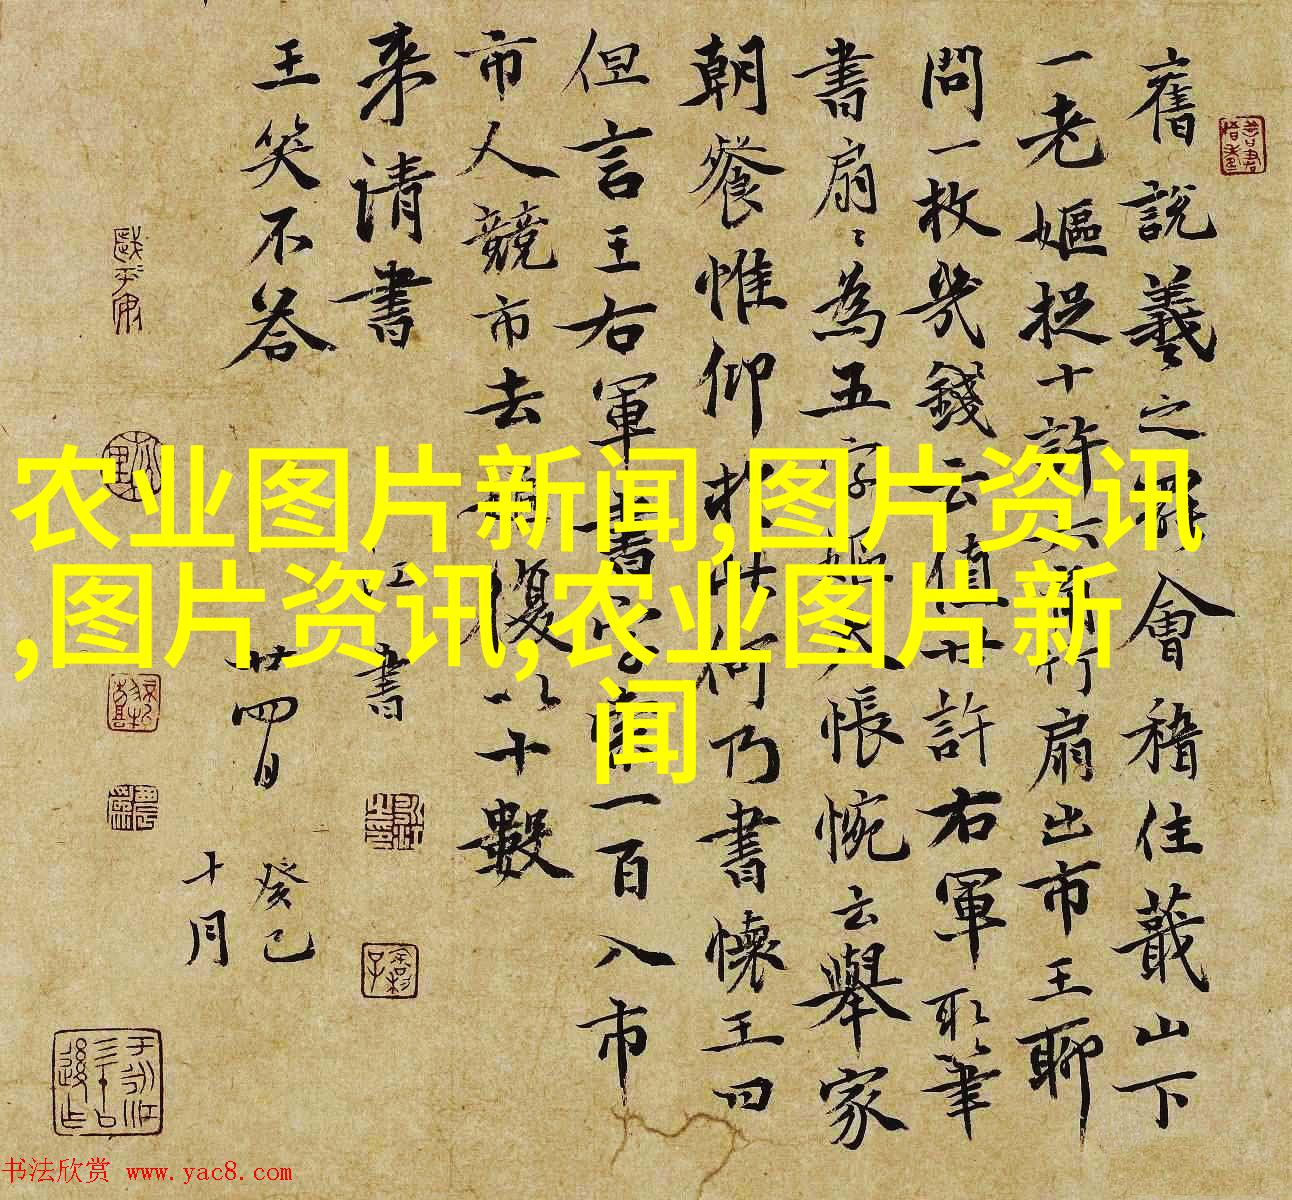 舊說羲之罷會稽住蕺山下
一老嫗捉十許六角竹扇出市王聊
問一枚幾錢云值廿許右軍取筆
書扇〻為五字嫗大悵惋云舉家
朝餐惟仰何乃書懷王曰
但言王右軍書字索一百入市
市人競市去復以十數
来請書
王笑不答
廿四日
癸巳
十月
农业图片新闻,图片资讯
,图片资讯,农业图片新
闻
书法欣赏 www.yac8.com